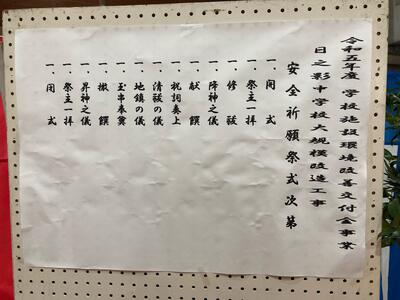 令和五年度 学校施設環境改善交付金事業
日之影中学校大規模改造工事
安全祈願祭式次第
一、開式
一、祭主一拝
一、修祓
一、降神之儀
一、献饌
一、祝詞奏上
一、清祓の儀
一、地鎮の儀
一、玉串奉奠
一、撤饌
一、昇神之儀
一、祭主一拝
一、閉式